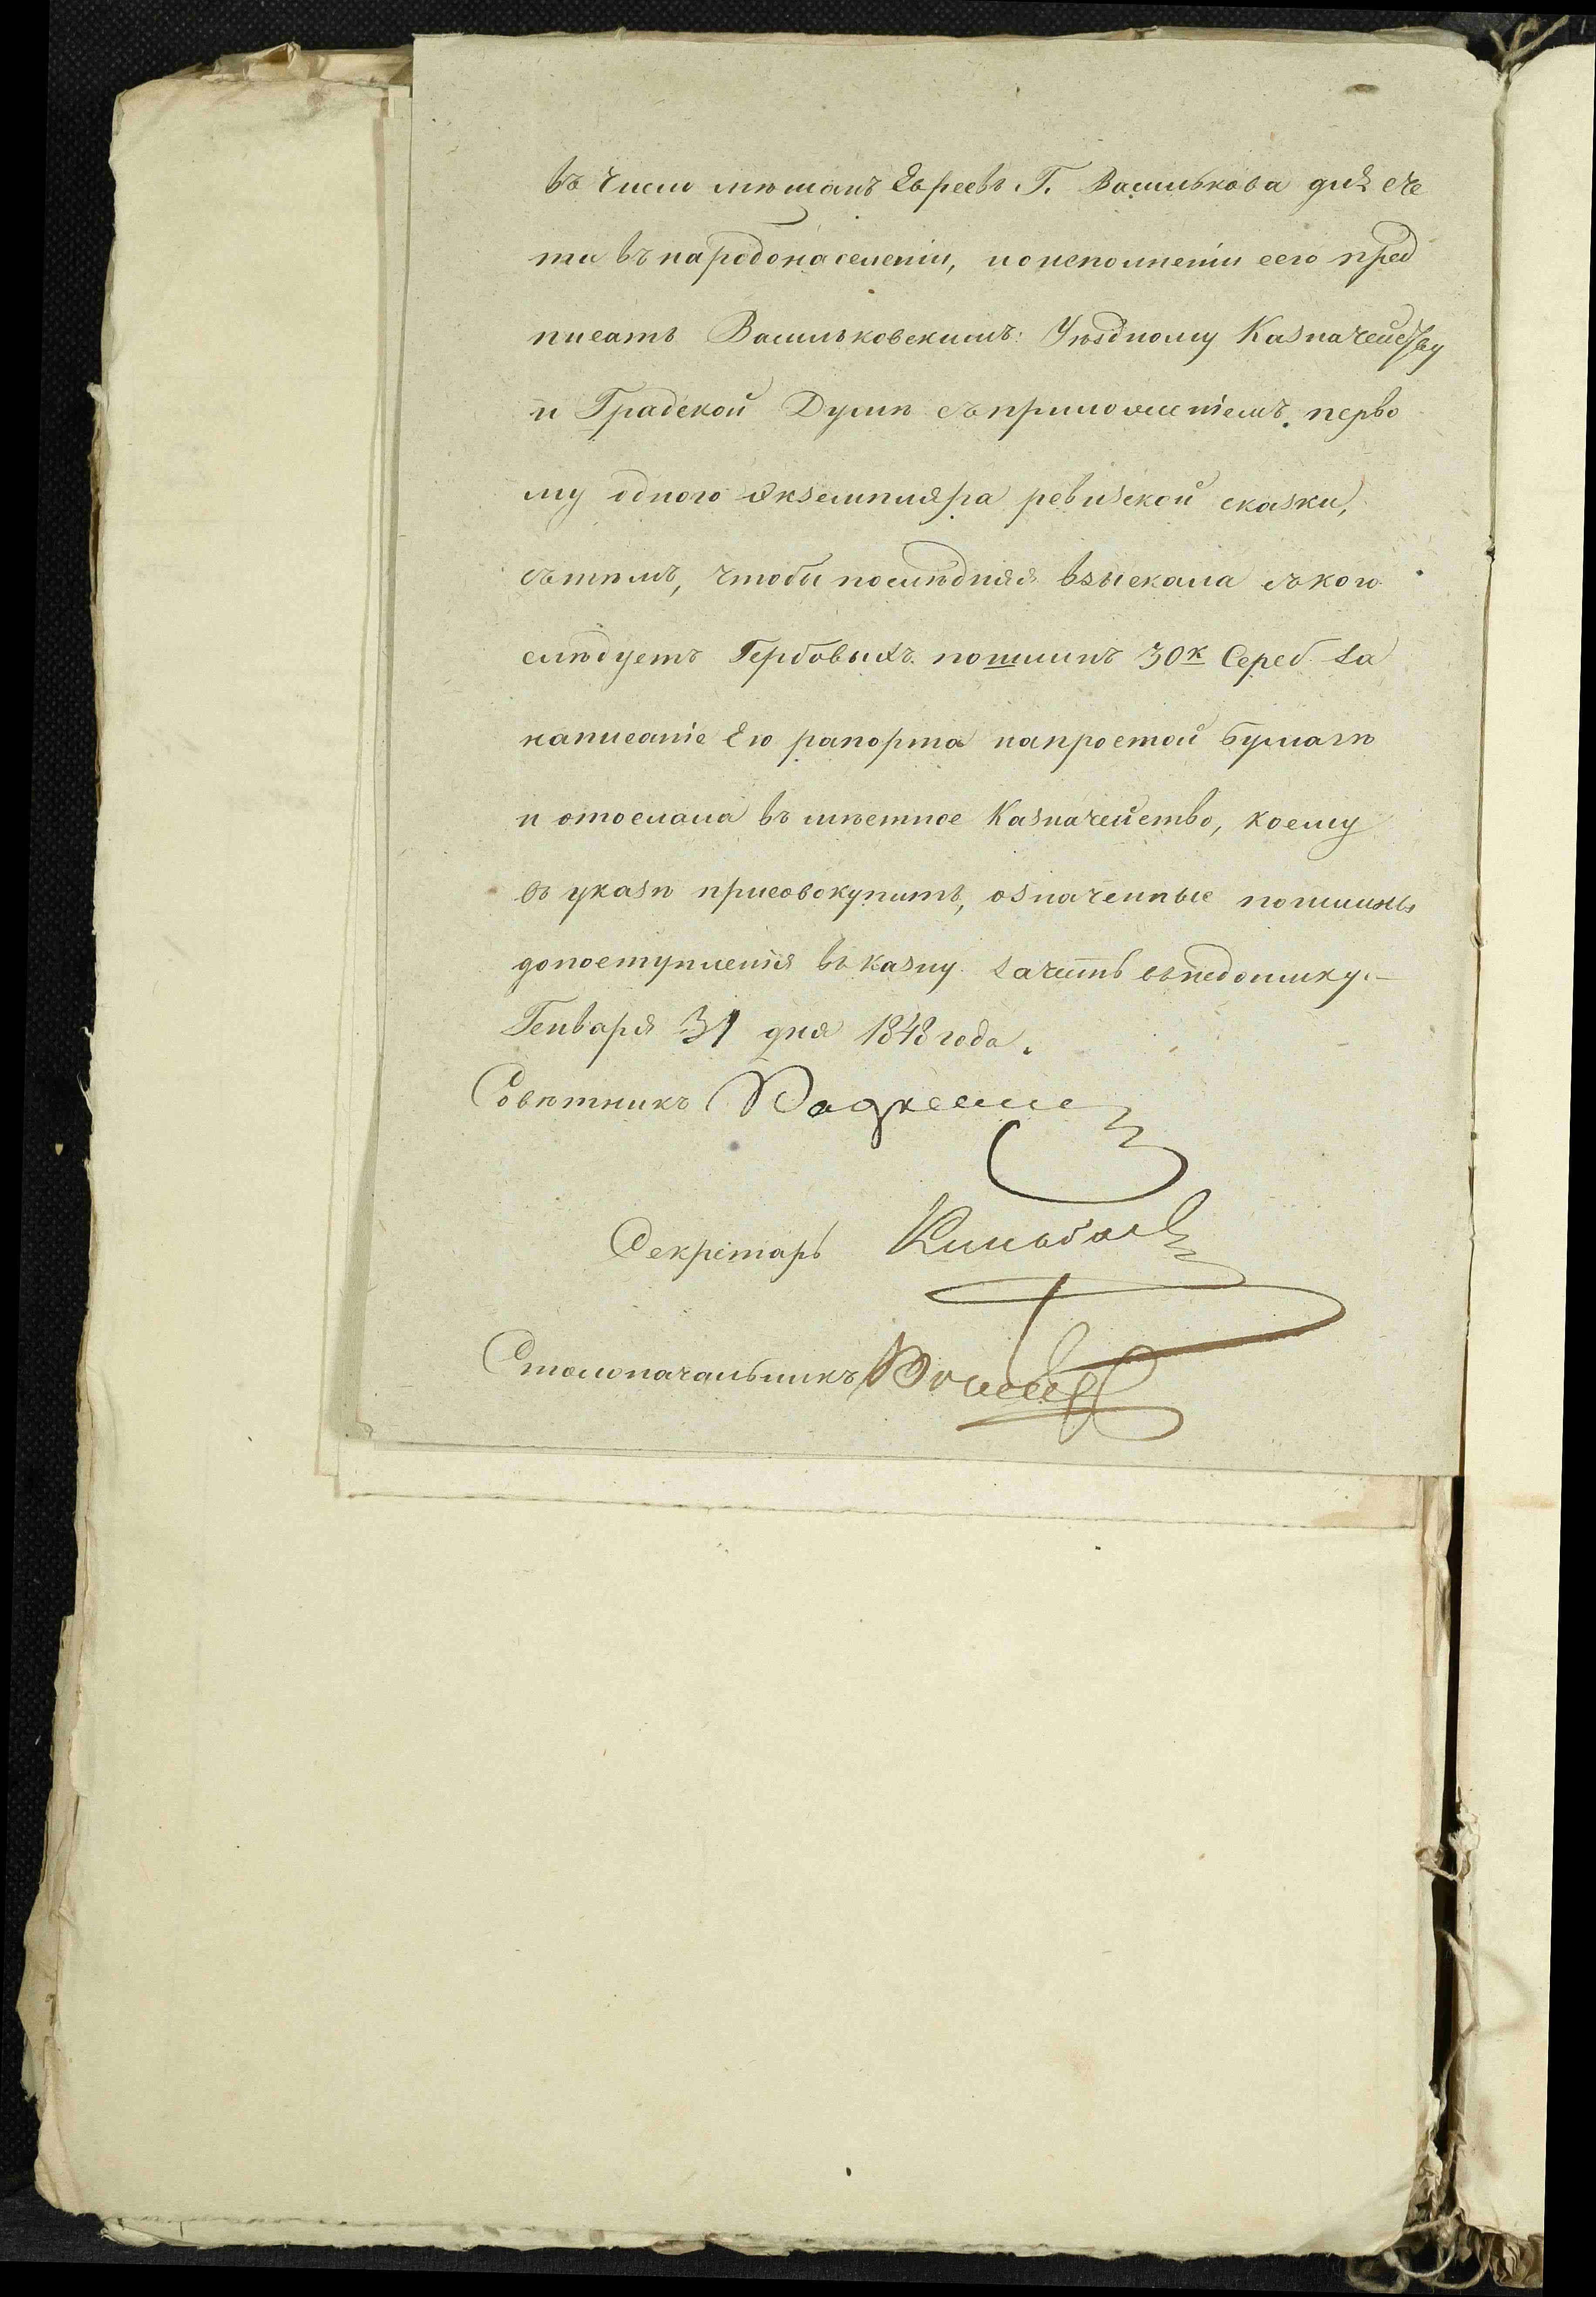 въ число мѣщанъ Евреевъ Г. Василькова для сче
та въ народонаселеніи, и о исполненіи сего пред
писать Васильковскимъ: Уѣздному Казначейству
и Градской Думѣ съ приложеніемъ перво
му одного экземпляра ревизской сказки,
съ тѣмъ, чтобы послѣдняя взыскала съ кого
слѣдуетъ Гербовыхъ пошлинъ 30к Сереб за
написаніе Ею рапорта на простой бумагѣ
и отослала въ мѣстное Казначейство, коему
въ указѣ присовокупить, означенные пошлины
до поступленія въ казну зачесть въ недоимку.–
Генваря 31 дня 1848 года.
Совѣтникъ
Секретарь
Столоначальникъ